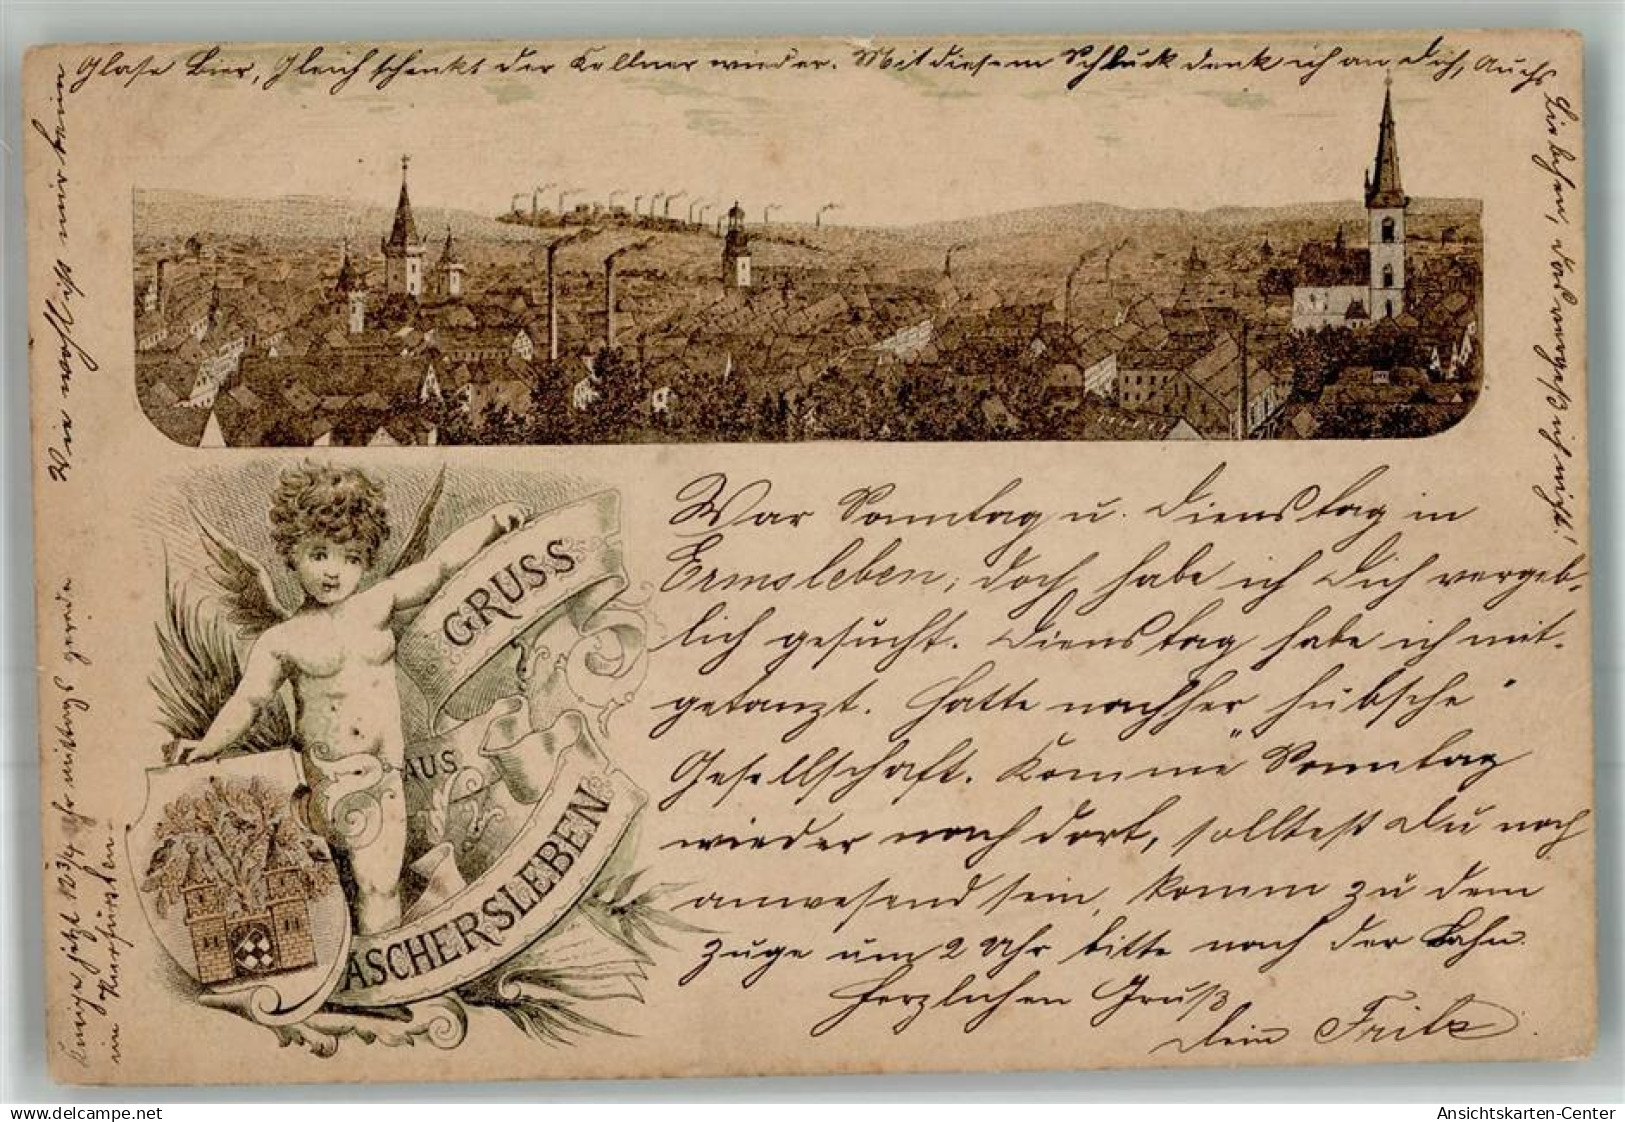 Glase Bier, Gleich schenkt der Kellner wieder. Mit diesem Schluck denk ich an Dich, Auchs
Liebchen, Du vergeß ich nicht!
Wie wohl ist mir beim
GRUSS
AUS
ASCHERSLEBEN
War Sonntag u. Dienstag in
Ermsleben, doch habe ich Dich vergeb-
lich gesucht. Dienstag habe ich mit-
getanzt. Hatte nachher hübsche
Gesellschaft. Komme Sonntag
wieder nach dort, solltest Du noch
anwesend sein, komm zu dem
Zuge um 2 Uhr bitte nach der Bahn.
Herzlichen Gruß
Dein Fritz
jetzt 12 3/4 Uhr mittags gerade
im
Ansichtskarten-Center